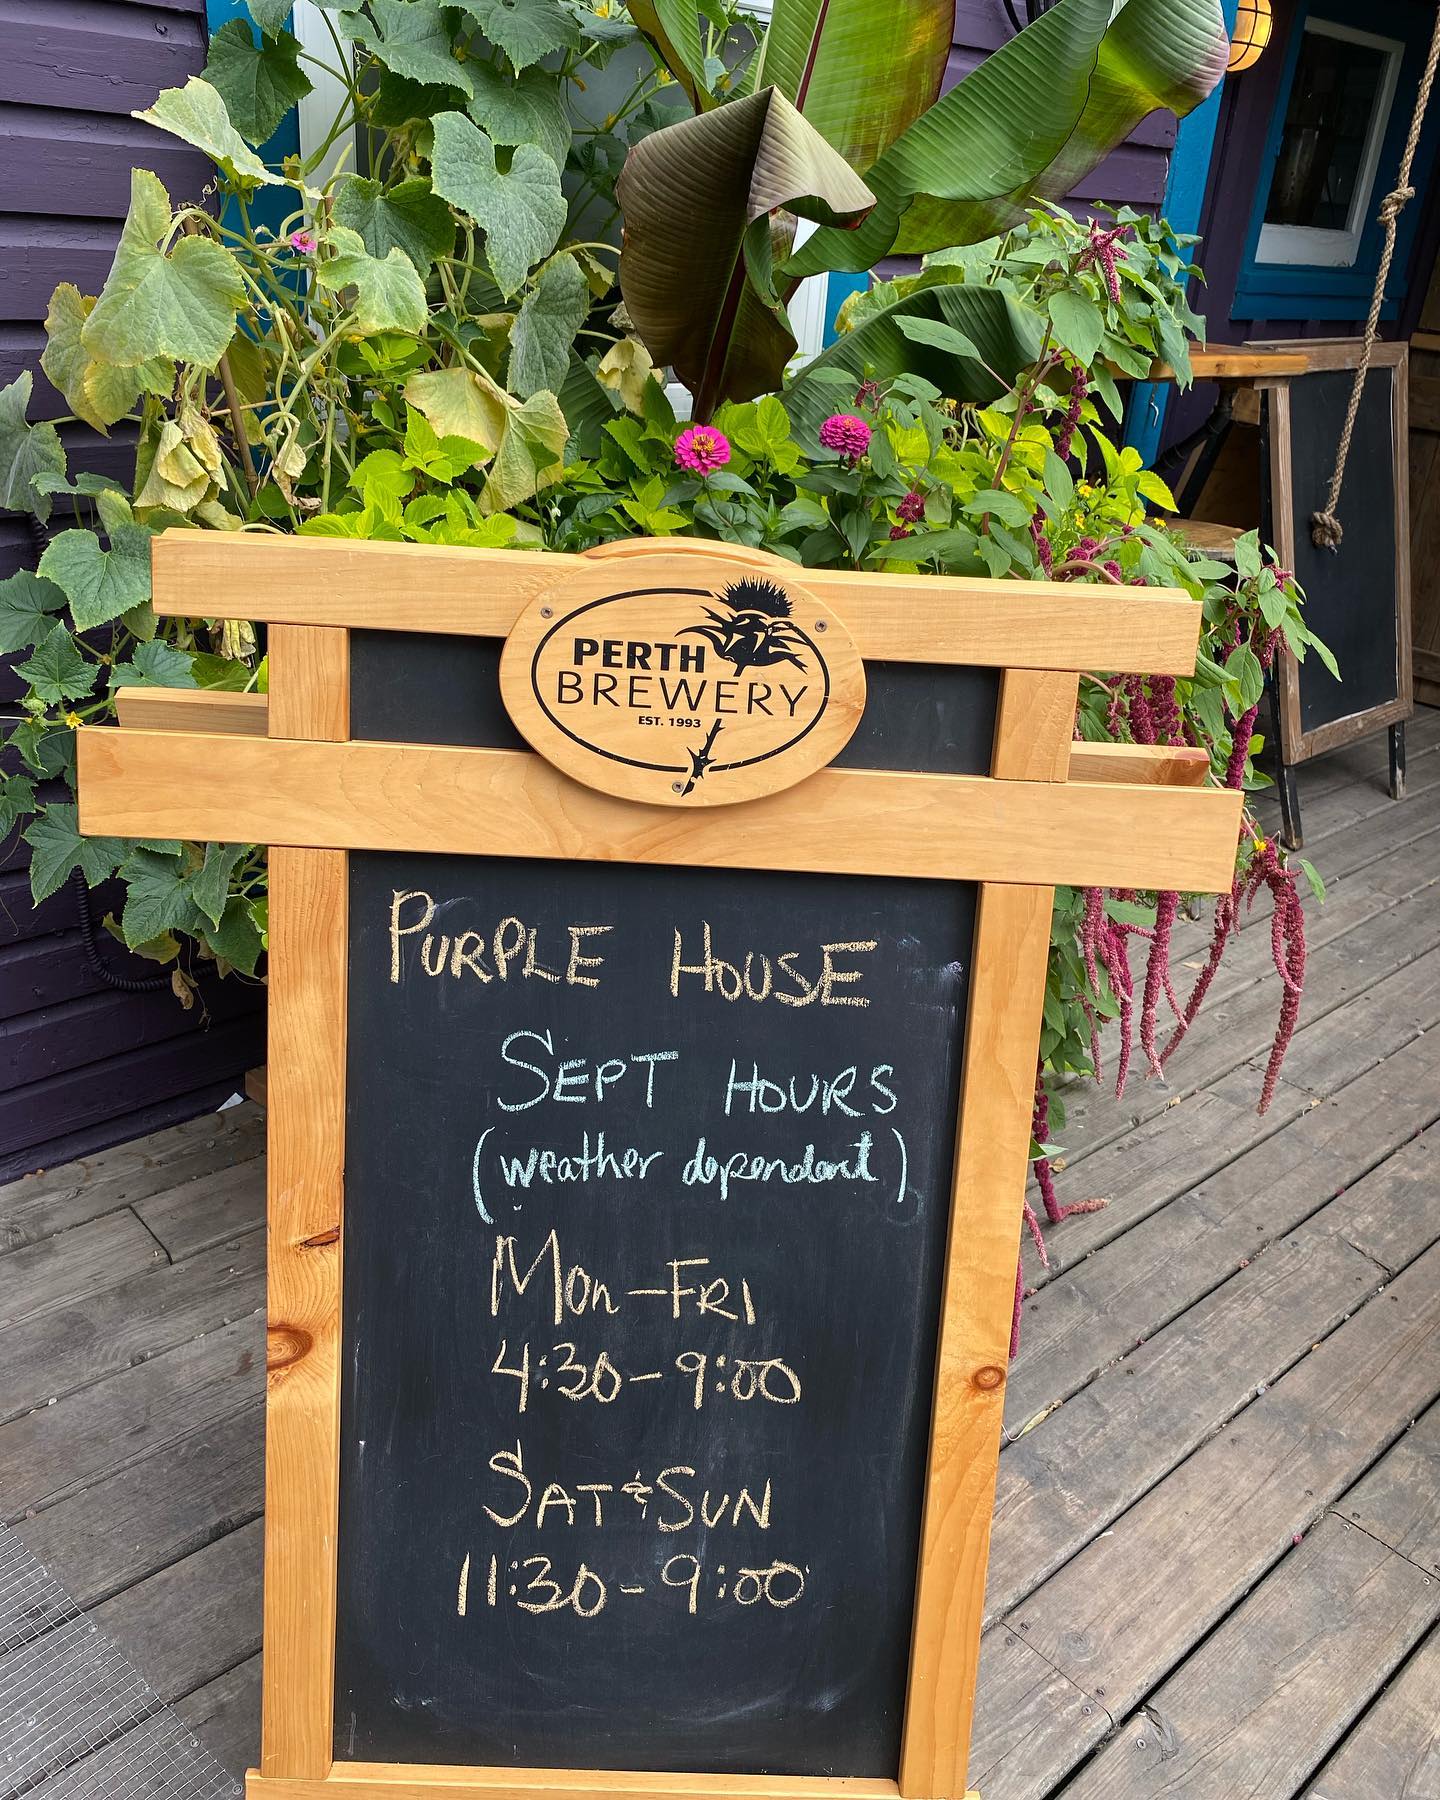 PERTH
BREWERY
EST. 1993
PURPLE HOUSE
SEPT HOURS
(weather dependant)
MON-FRI
4:30-9:00
SAT & SUN
11:30-9:00